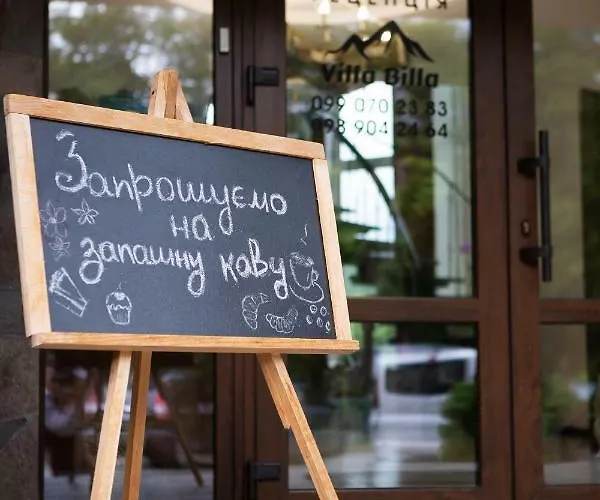 Villa Billa
099 070 23 83
098 904 24 64
Запрошуємо
на
запашну каву